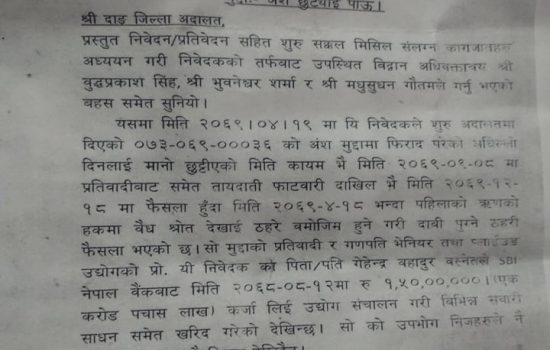 अंश छुट्याई पाऊँ।
श्री दाङ जिल्ला अदालत,
प्रस्तुत निवेदन/प्रतिवेदन सहित शुरु सक्कल मिसिल संलग्न कागजातहरु
अध्ययन गरी निवेदकको तर्फबाट उपस्थित विद्वान अधिवक्तात्रय श्री
बुद्धप्रकाश सिंह, श्री भुवनेश्वर शर्मा र श्री मधुसुधन गौतमले गर्नु भएको
बहस समेत सुनियो।
यसमा मिति २०६९।०४।१९ मा यि निवेदकले शुरु अदालतमा
दिएको ०७३-०६९-०००३६ को अंश मुद्दामा फिराद परेको अघिल्लो
दिनलाई मानो छुट्टीएको मिति कायम भै मिति २०६९-०९-०८ मा
प्रतिवादीबाट समेत तायदाती फाटवारी दाखिल भै मिति २०६९-१२-
१८ मा फैसला हुँदा मिति २०६९-४-१८ भन्दा पहिलाको ऋणको
हकमा वैध श्रोत देखाई ठहरे बमोजिम हुने गरी दावी पुग्ने ठहरी
फैसला भएको छ। सो मुद्दाको प्रतिवादी र गणपति भेनियर तथा प्लाईउड
उद्योगको प्रो. यी निवेदक को पिता/पति गेहेन्द्र बहादुर बस्नेतले SBI
नेपाल बैंकबाट मिति २०६८-०८-१२मा रु १,५०,००,०००।(एक
करोड पचास लाख) कर्जा लिई उद्योग संचालन गरी विभिन्न सवारी
साधन समेत खरिद गरेको देखिन्छ। सो को उपभोग निजहरुले नै